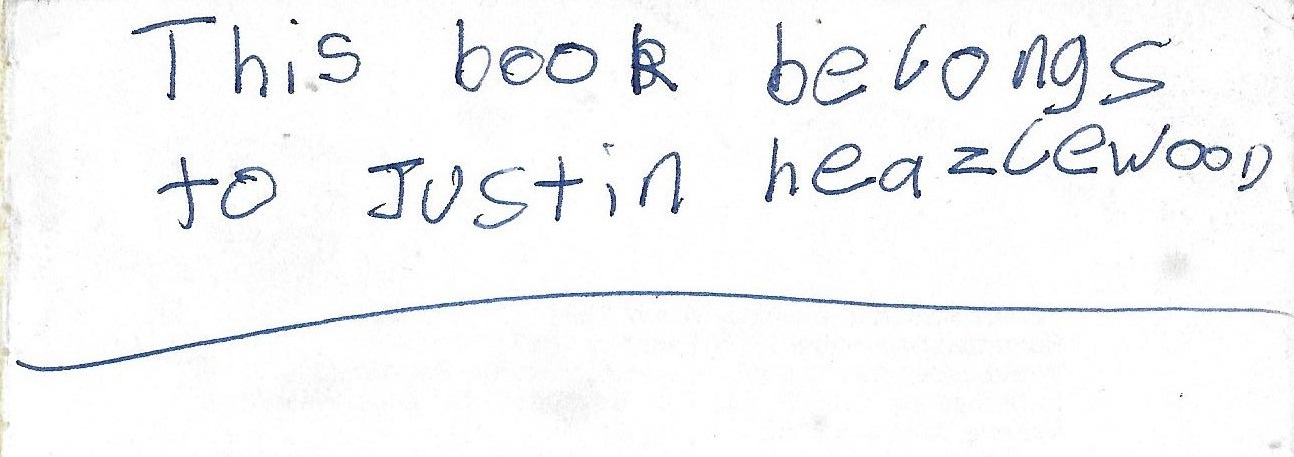 This book belongs
to Justin heazlewooD